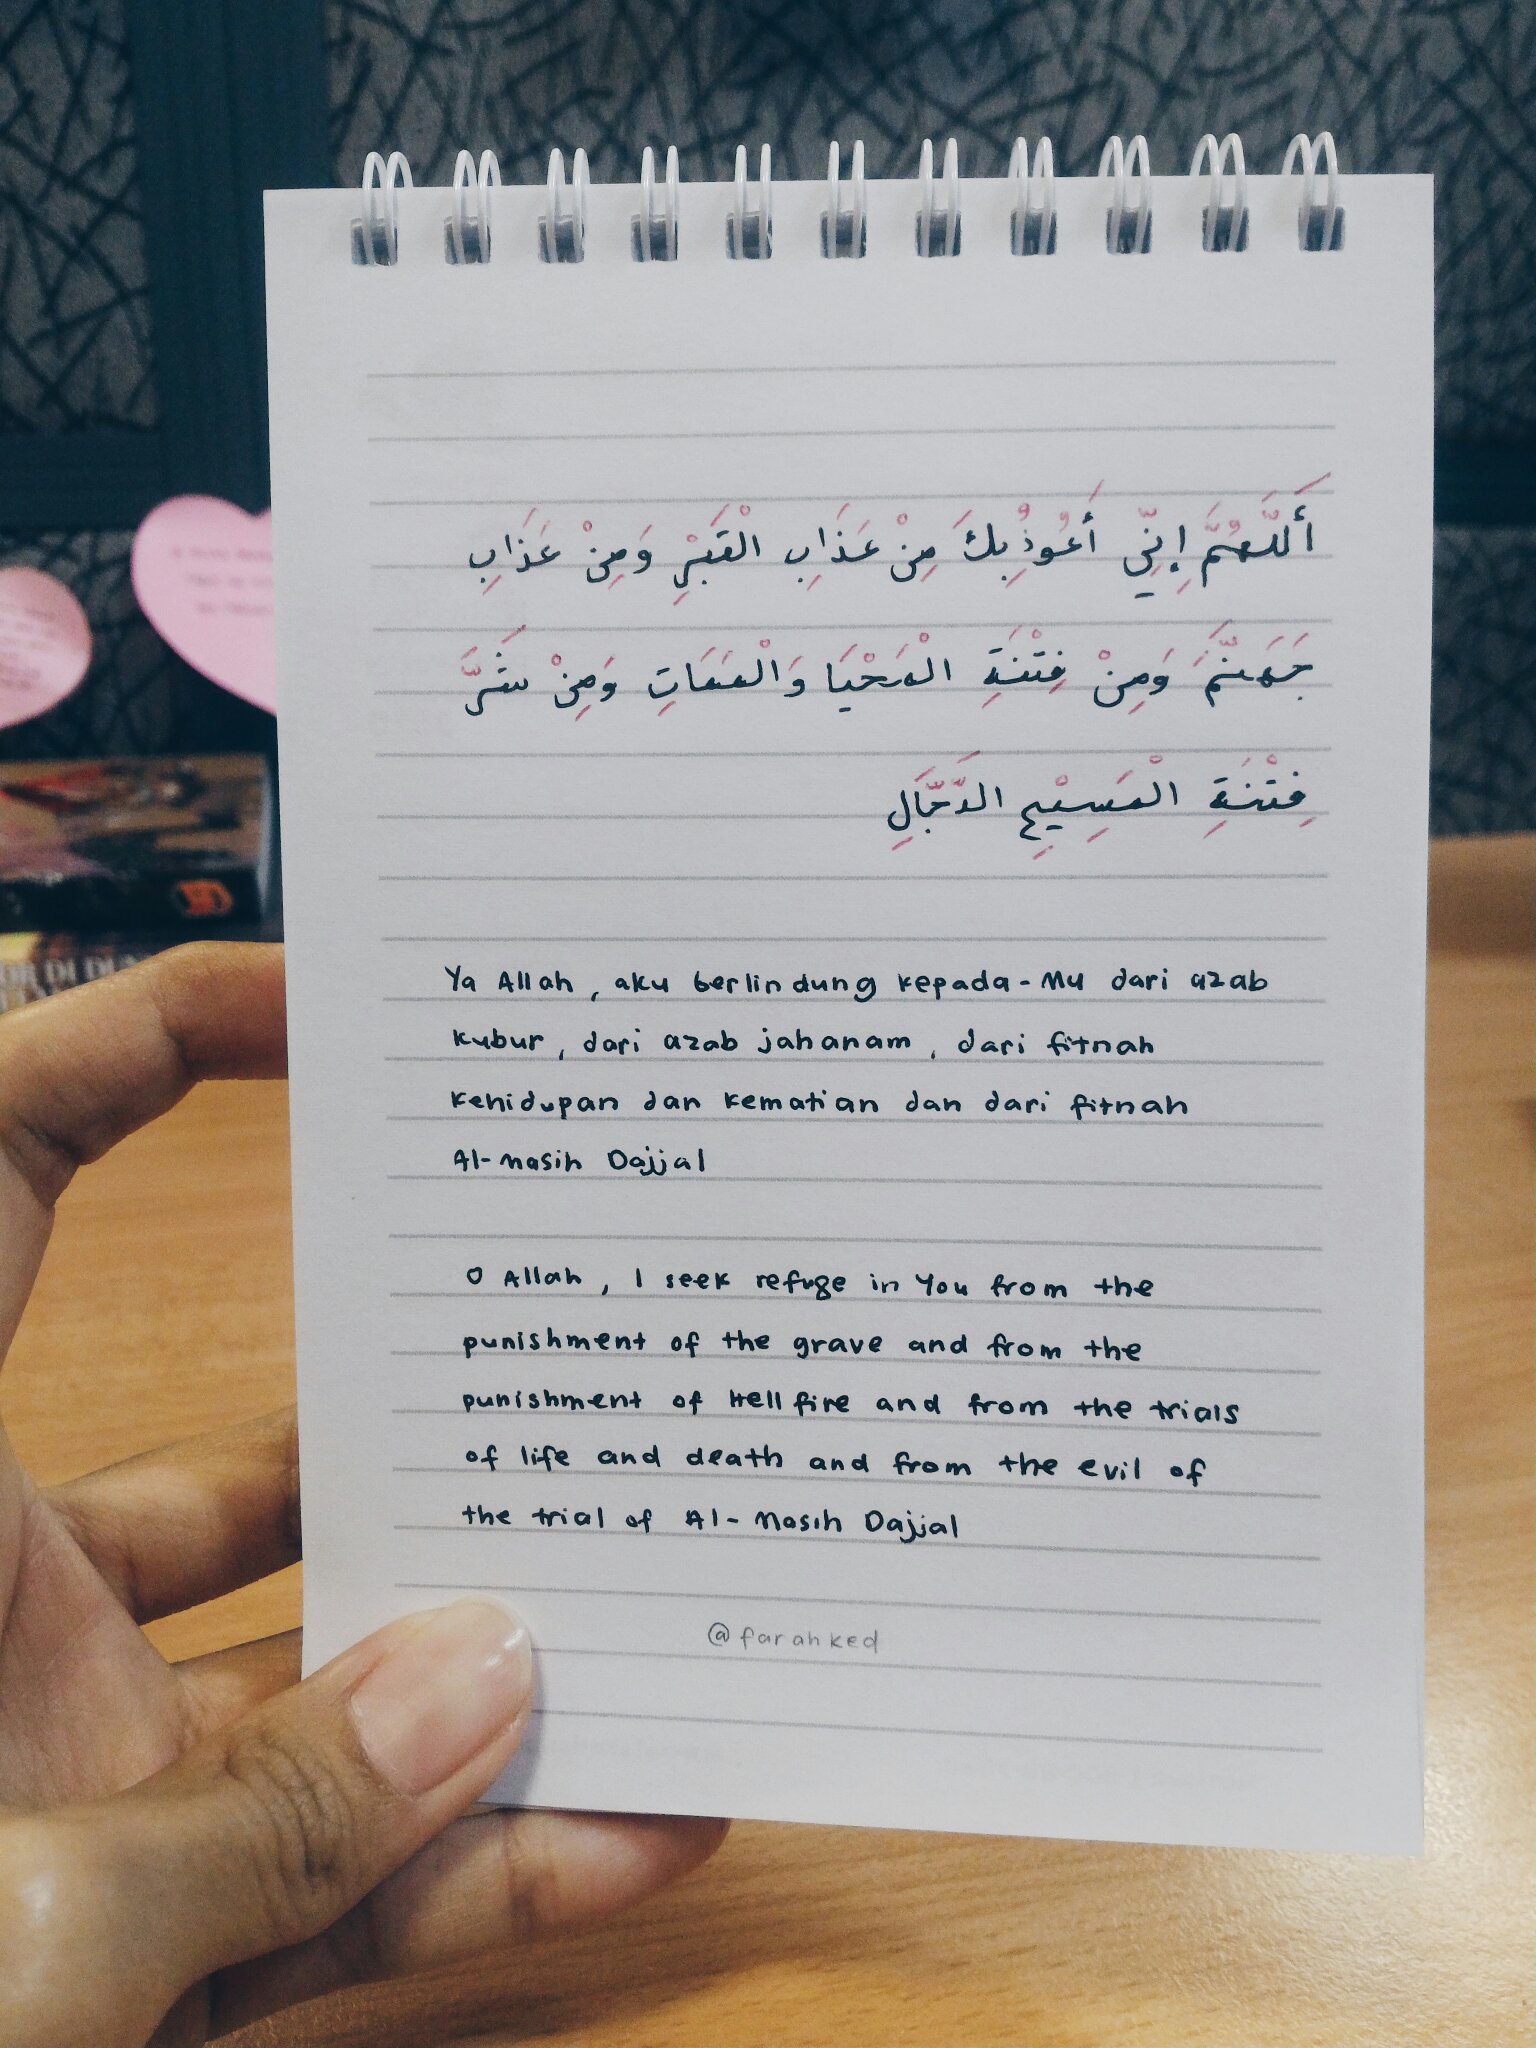 أَللَّهُمَّ إِنِّي أَعُوْذُبِكَ مِنْ عَذَابِ الْقَبْرِ وَمِنْ عَذَابِ
جَهَنَّمَ وَمِنْ فِتْنَةِ الْمَحْيَا وَالْمَمَاتِ وَمِنْ شَرِّ
فِتْنَةِ الْمَسِيْحِ الدَّجَّالِ
Ya Allah, aku berlindung kepada-Mu dari azab
kubur, dari azab jahanam, dari fitnah
kehidupan dan kematian dan dari fitnah
Al-masih Dajjal
O Allah, I seek refuge in You from the
punishment of the grave and from the
punishment of Hellfire and from the trials
of life and death and from the evil of
the trial of Al-Masih Dajjal
@farahked